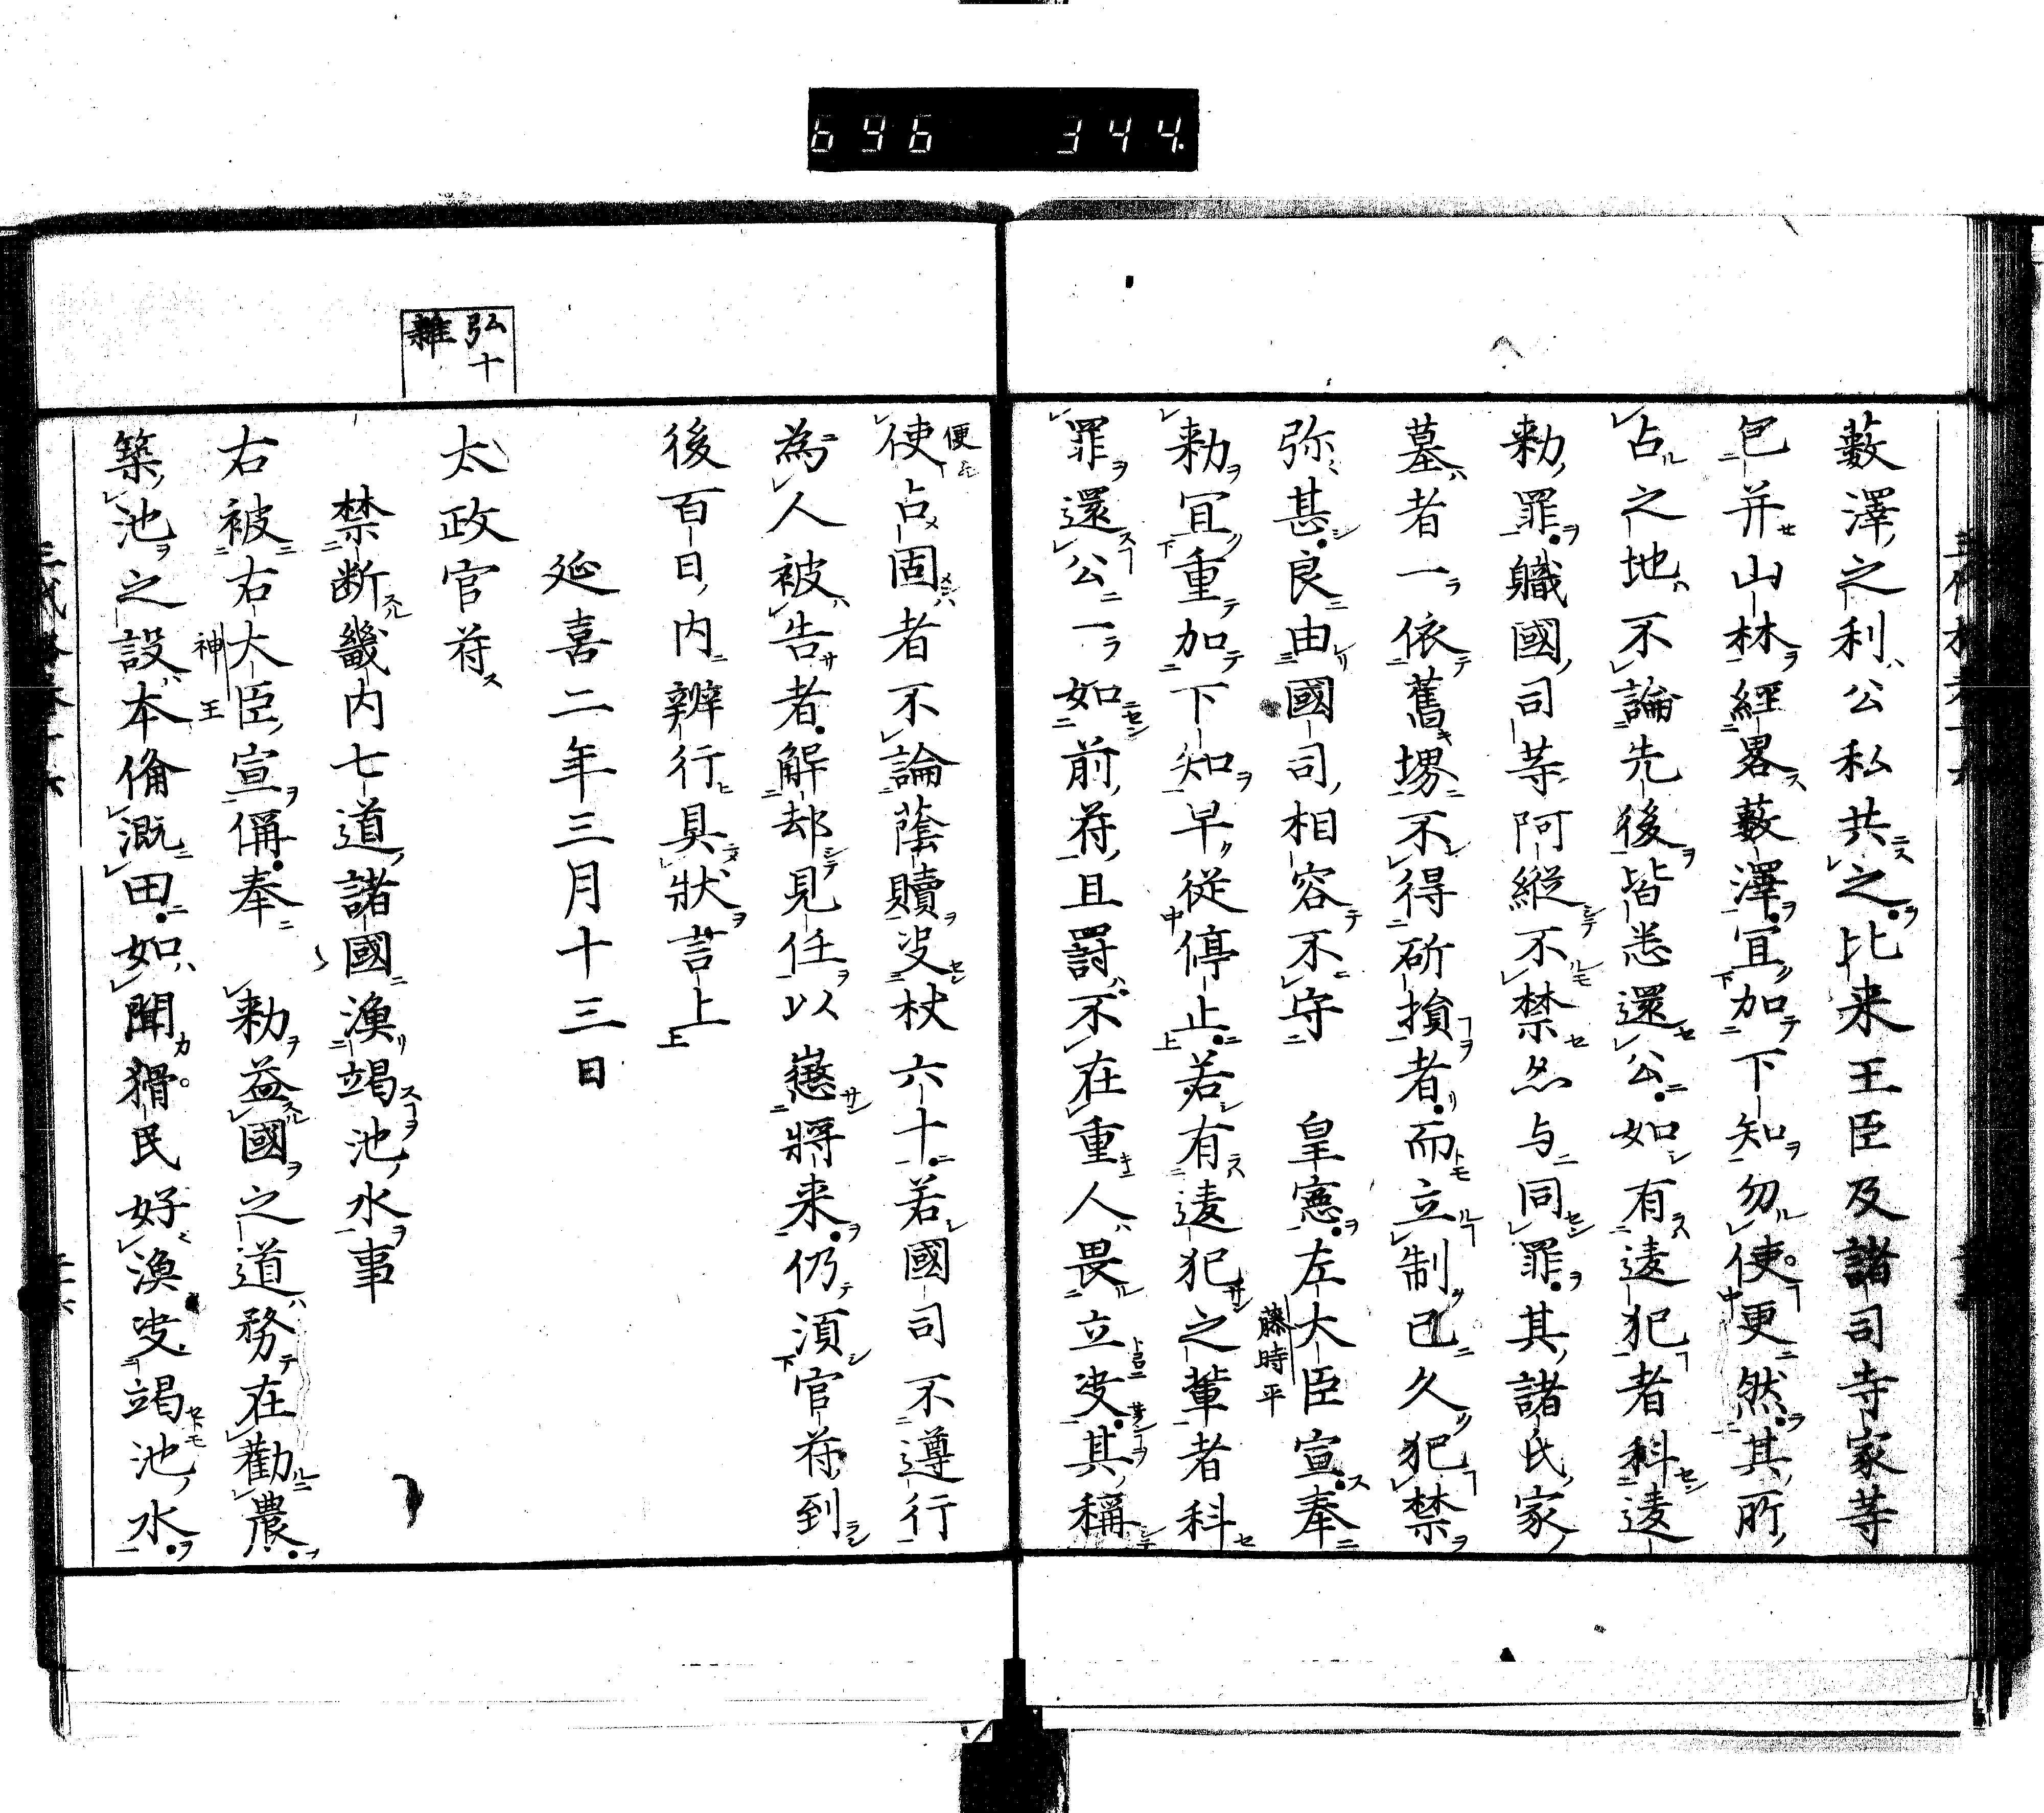 696 344
藪澤之利公私共之比来王臣及諸司寺家等
包并山林經畧藪澤宜加下知勿使更然其所
占之地不論先後皆悉還公如有違犯者科違
勅罪軄國司等阿縦不禁忽与同罪其諸氏家
墓者一依舊堺不得斫損者而立制已久犯禁
弥甚良由國司相容不守 皇憲左大臣宣奉
藤時平
勅宜重加下知早從停止若有違犯之輩者科
罪還公一如前符且罸不在重人畏立法其稱
使占固者不論蔭贖决杖六十若國司不遵行
便
為人被告者解却見任以懲將来仍湏官符到
後百日内辨行具狀言上
延喜二年三月十三日
弘十
雜
太政官符
禁断畿内七道諸國漁竭池水事
右被右大臣宣偁奉 勅益國之道務在勸農
神王
築池之設本俻漑田如聞猾民好漁决竭池水